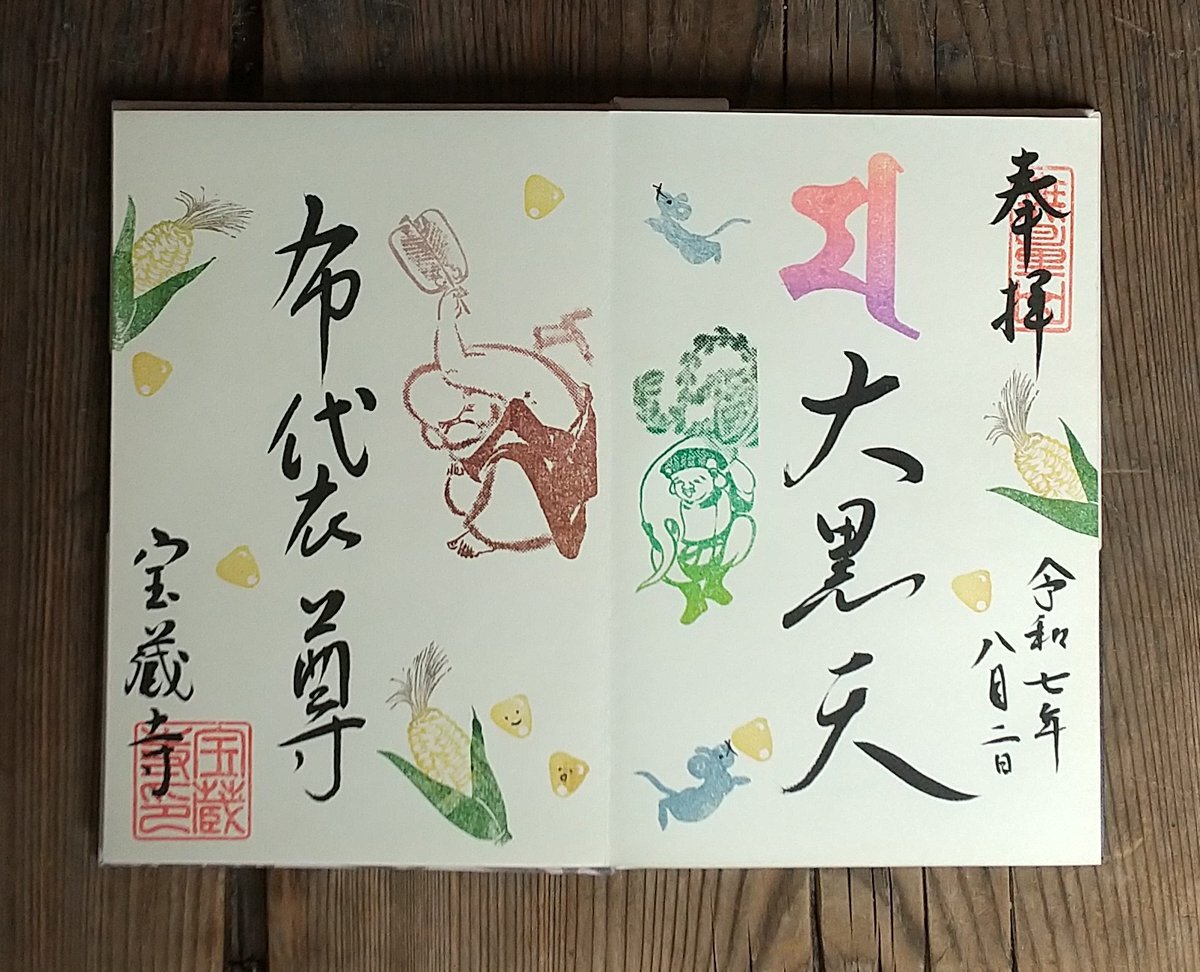 奉拝
令和七年
八月二日
大黒天
布袋尊
宝蔵寺
宝蔵
寺印